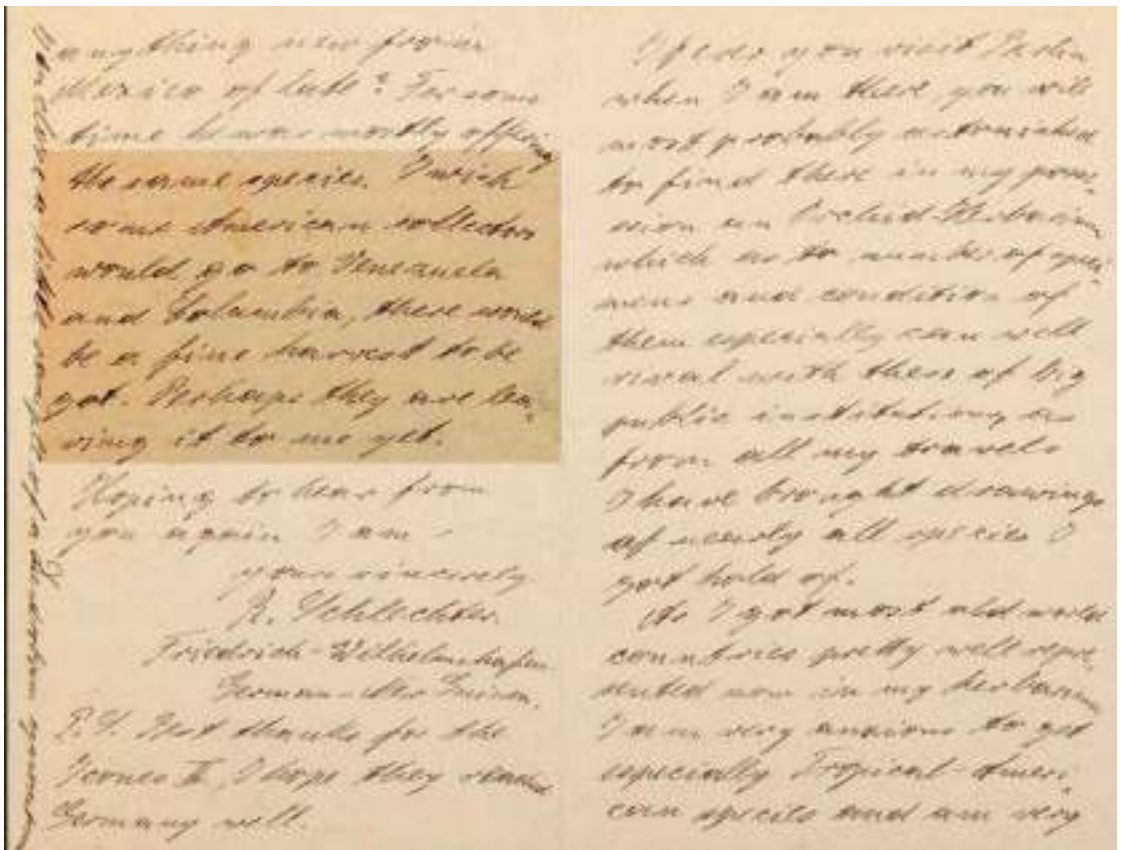 anything new from
Mexico of late? For some
time he was mostly offering
the same species. I wish
some American collectors
would go to Venezuela
and Columbia, there would
be a fine harvest to be
got. Perhaps they are lea-
ving it to me yet.
Hoping to hear from
you again I am -
yours sincerely
R. Schlechter.
Friedrich-Wilhelmshafen
German-New Guinea.
P.S. Best thanks for the
Icones II, I hope they reached
Germany well.
you visit Berlin
when I am there, you will
most probably astonished
to find there in my posses-
sion an Orchid-Herbarium
which as to number of speci-
mens and condition of
them especially can well
rival with those of big
public institutions, as
from all my travels
I have brought drawings
of nearly all species I
got hold of.
As I got most old world
countries pretty well repre-
sented now in my herbarium
I am very anxious to get
especially Tropical-Ameri-
can species and am very